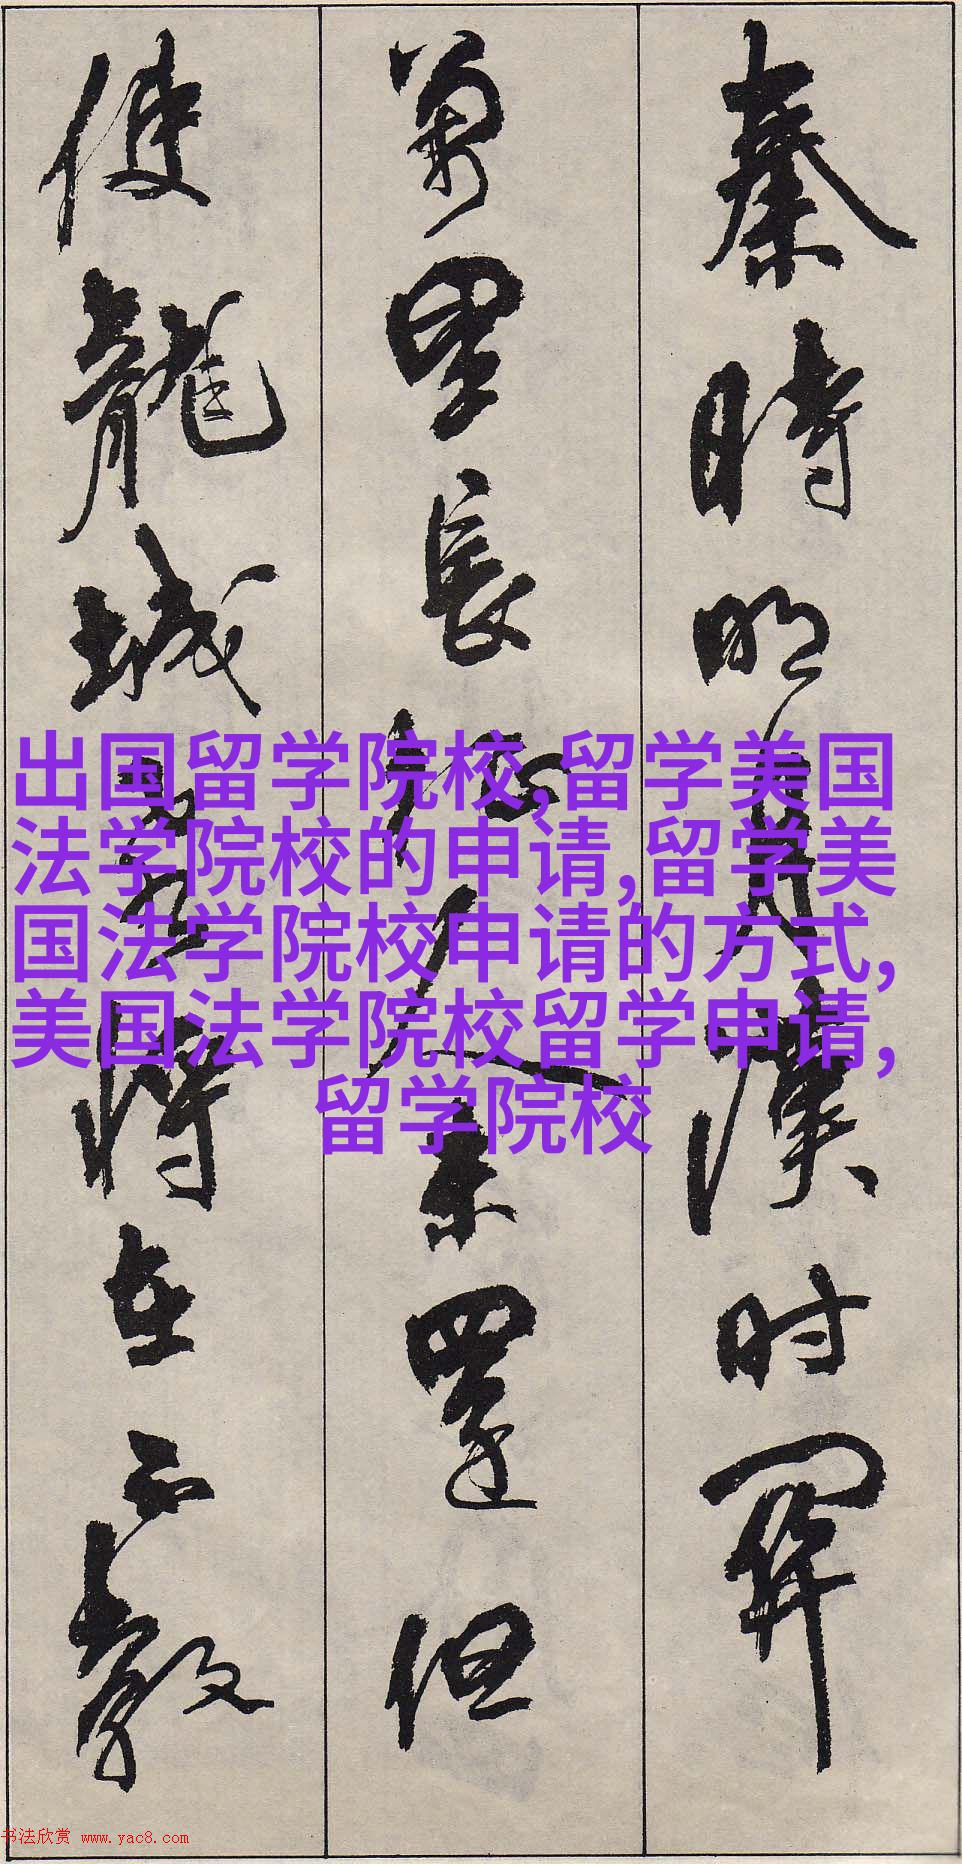 秦時明月漢时関
萬里長征人未還但
使龍城飛将在不教
出国留学院校,留学美国
法学院校的申请,留学美
国法学院校申请的方式,
美国法学院校留学申请,
留学院校
书法欣赏 www.yac8.com